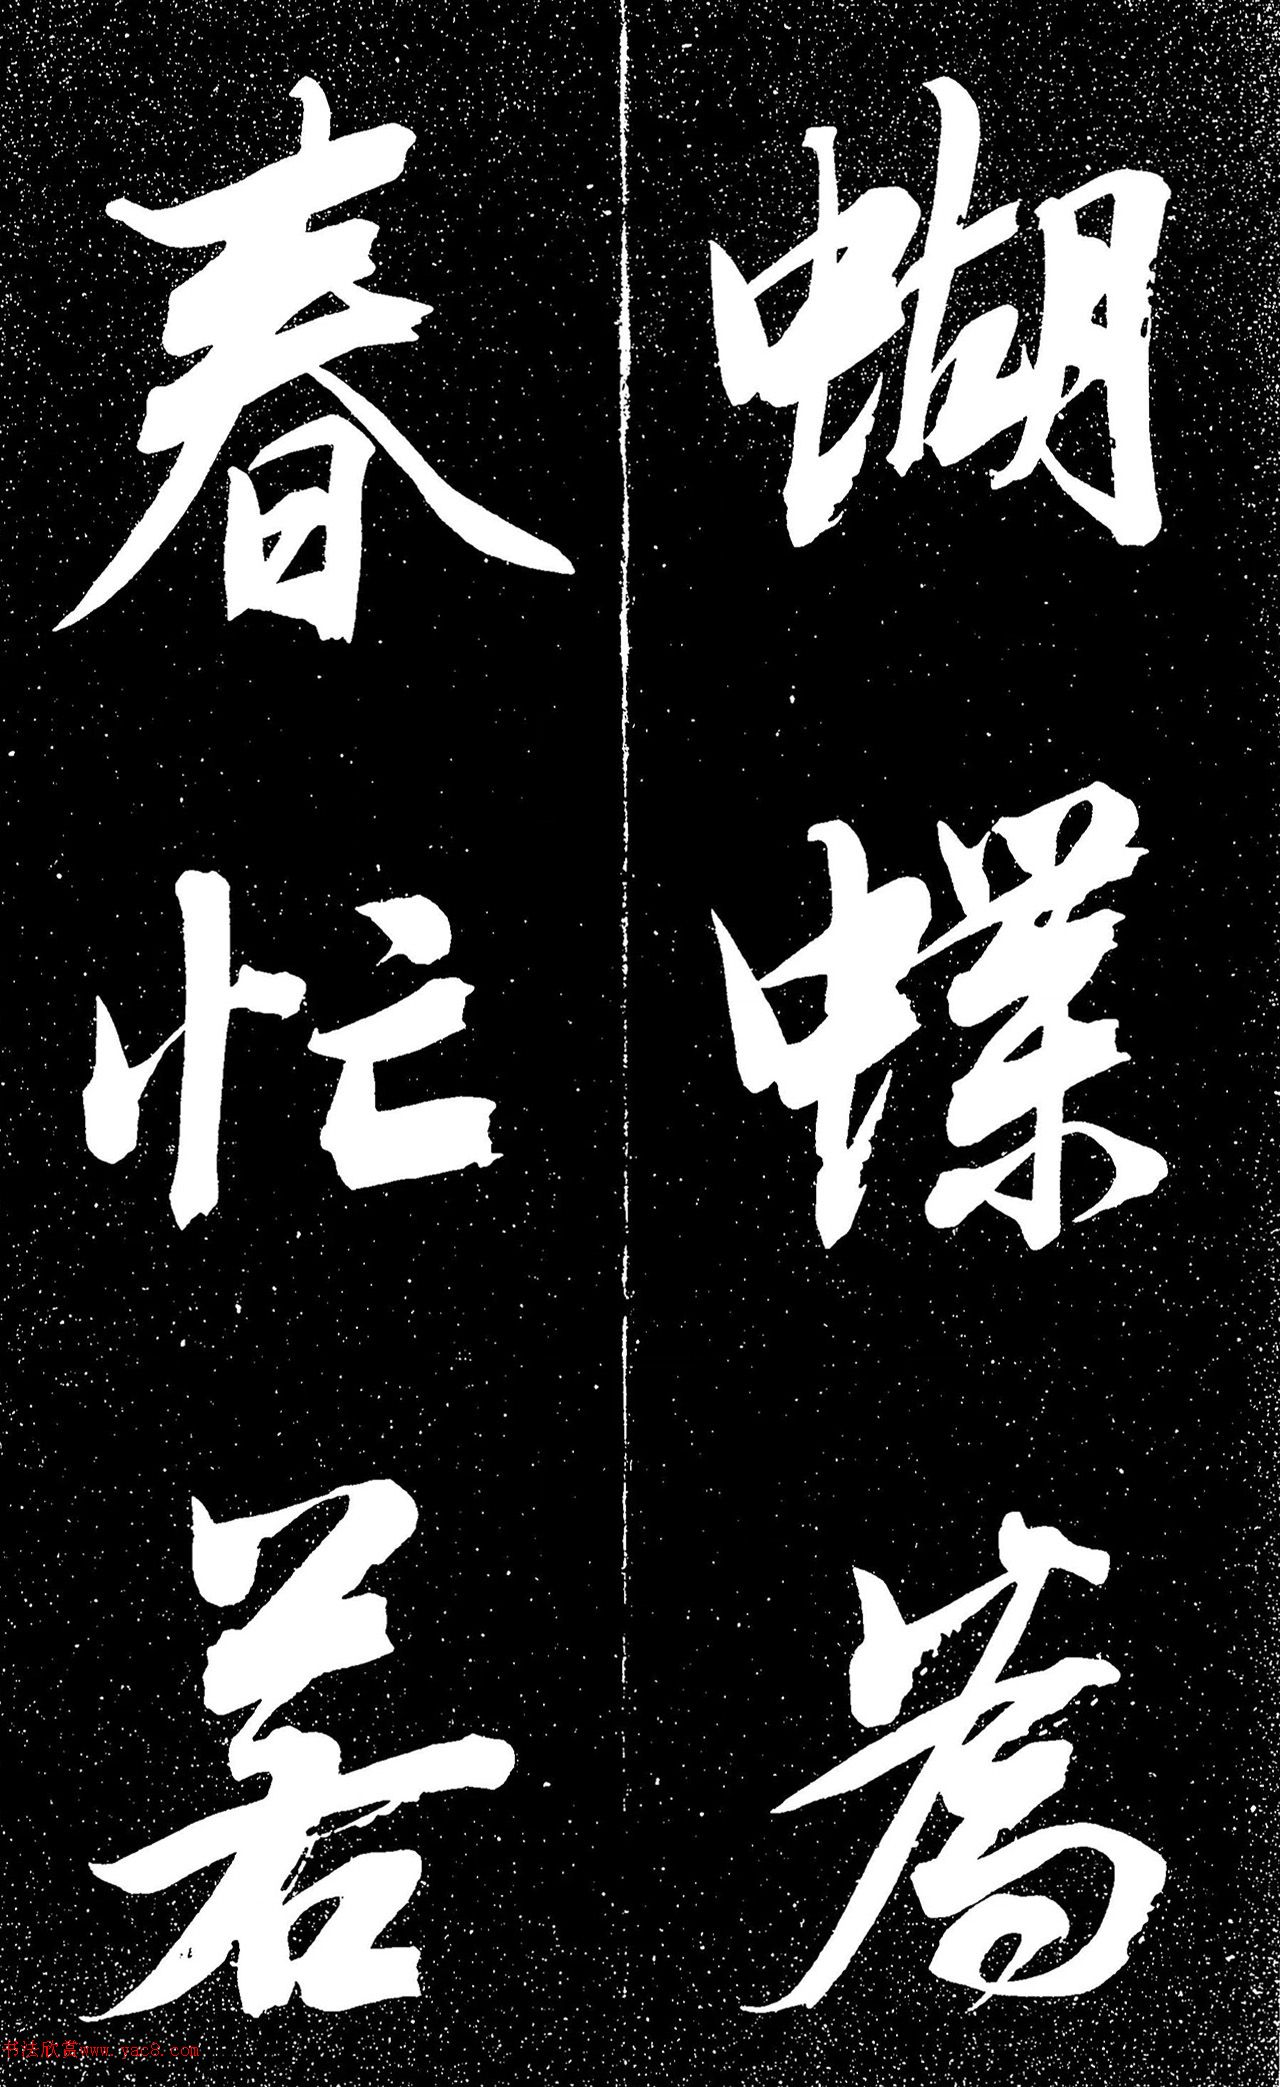 蝴蝶為
春忙若
书法欣赏www.yac8.com